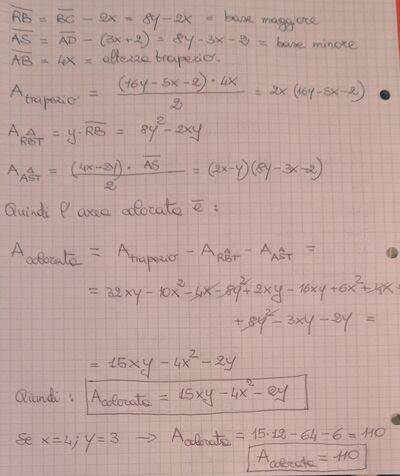 RB = BC - 2x = 8y - 2x = base maggiore
AS = AD - (3x+2) = 8y - 3x - 2 = base minore
AB = 4x = altezza trapezio.
A trapezio = (16y - 5x - 2) · 4x / 2 = 2x (16y - 5x - 2)
A RBT = y · RB = 8y² - 2xy
A AST = (4x - 2y) · AS / 2 = (2x - y)(8y - 3x - 2)
Quindi l'area colorata è :
A colorata = A trapezio - A RBT - A AST =
= 32xy - 10x² - 4x - 8y² + 2xy - 16xy + 6x² + 4x +
+ 8y² - 3xy - 2y =
= 15xy - 4x² - 2y
Quindi : A colorata = 15xy - 4x² - 2y
Se x=4; y=3 → A colorata = 15·12 - 64 - 6 = 110
A colorata = 110